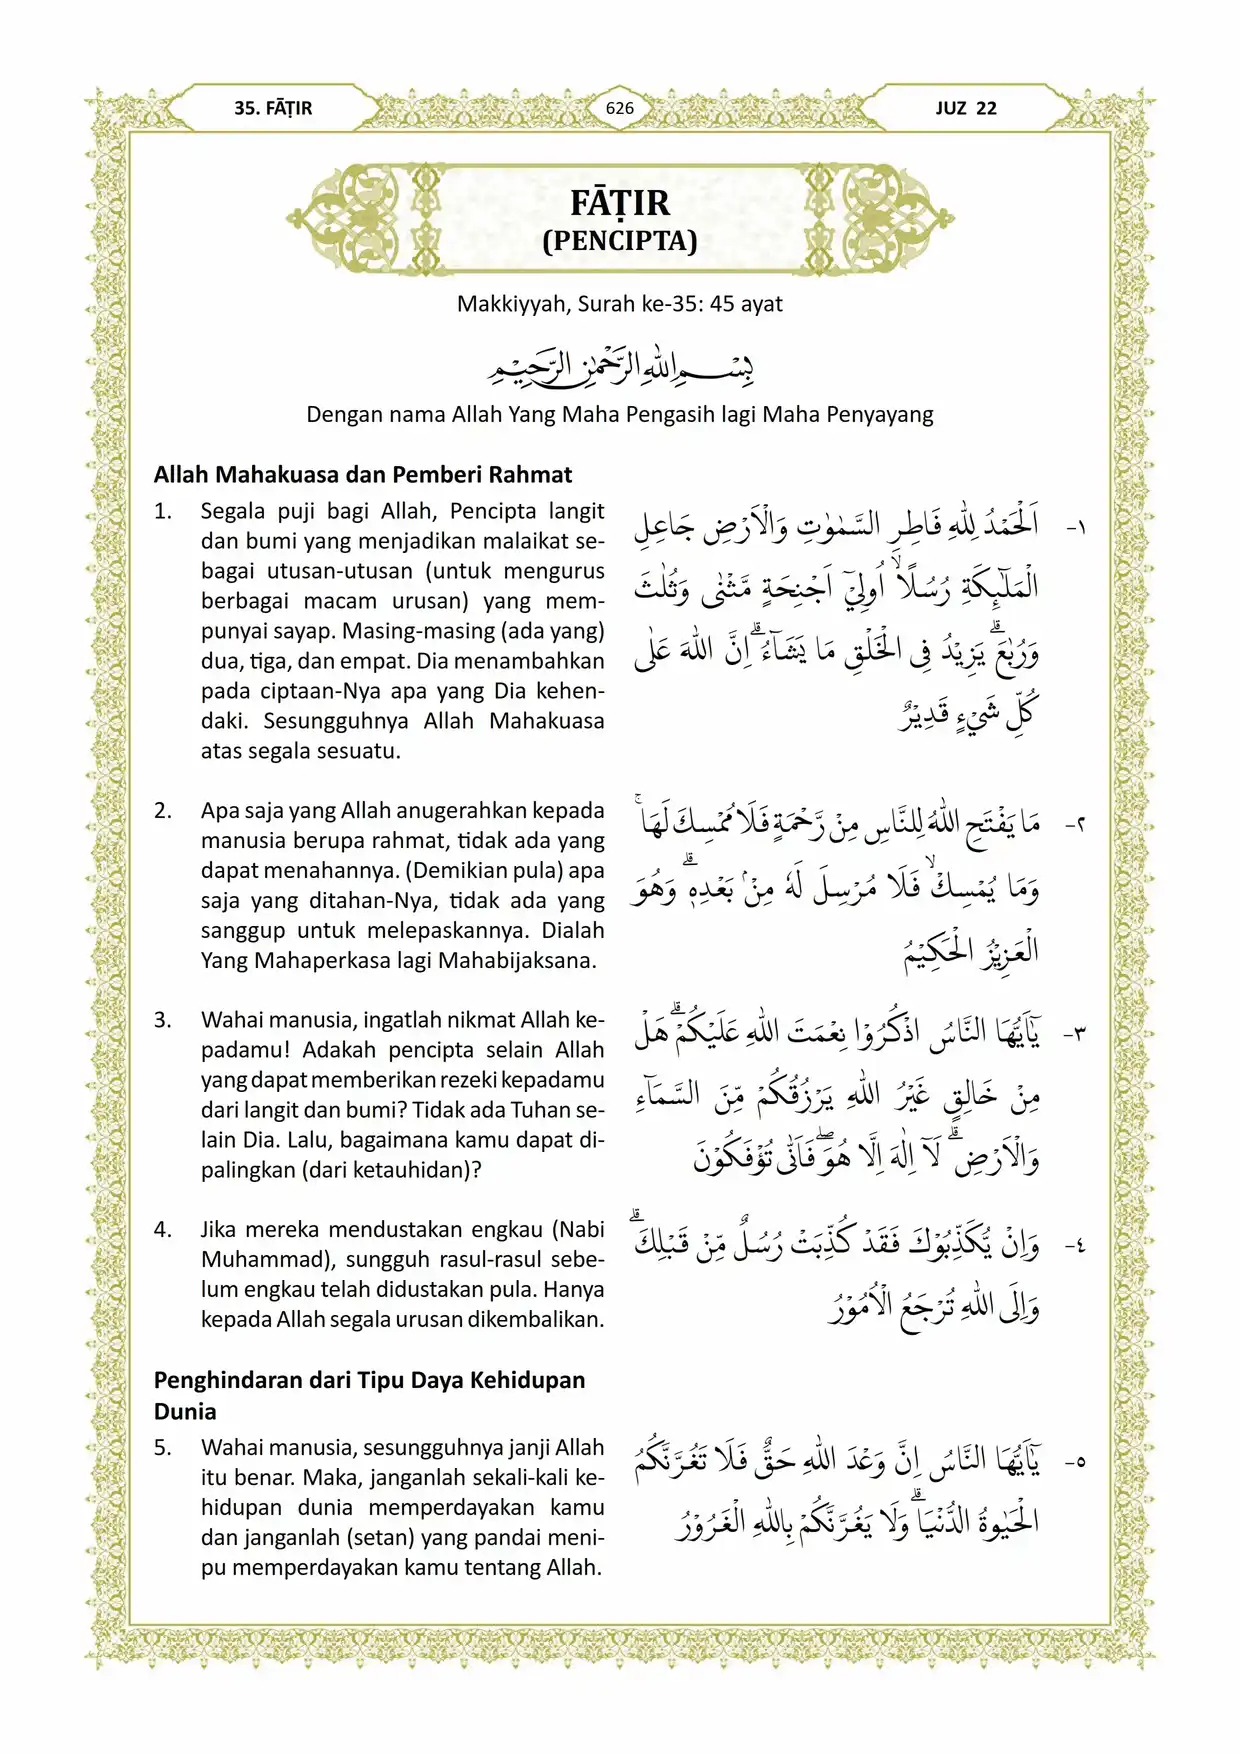 35. FĀṬIR
626
JUZ 22
FĀṬIR
(PENCIPTA)
Makkiyyah, Surah ke-35: 45 ayat
بِسْمِ اللّٰهِ الرَّحْمٰنِ الرَّحِيْمِ
Dengan nama Allah Yang Maha Pengasih lagi Maha Penyayang
Allah Mahakuasa dan Pemberi Rahmat
1. Segala puji bagi Allah, Pencipta langit
dan bumi yang menjadikan malaikat se-
bagai utusan-utusan (untuk mengurus
berbagai macam urusan) yang mem-
punyai sayap. Masing-masing (ada yang)
dua, tiga, dan empat. Dia menambahkan
pada ciptaan-Nya apa yang Dia kehen-
daki. Sesungguhnya Allah Mahakuasa
atas segala sesuatu.
١- اَلْحَمْدُ لِلّٰهِ فَاطِرِ السَّمٰوٰتِ وَالْاَرْضِ جَاعِلِ
الْمَلٰۤىِٕكَةِ رُسُلًاۙ اُولِيْٓ اَجْنِحَةٍ مَّثْنٰى وَثُلٰثَ
وَرُبٰعَۗ يَزِيْدُ فِى الْخَلْقِ مَا يَشَاۤءُۗ اِنَّ اللّٰهَ عَلٰى
كُلِّ شَيْءٍ قَدِيْرٌ
2. Apa saja yang Allah anugerahkan kepada
manusia berupa rahmat, tidak ada yang
dapat menahannya. (Demikian pula) apa
saja yang ditahan-Nya, tidak ada yang
sanggup untuk melepaskannya. Dialah
Yang Mahaperkasa lagi Mahabijaksana.
٢- مَا يَفْتَحِ اللّٰهُ لِلنَّاسِ مِنْ رَّحْمَةٍ فَلَا مُمْسِكَ لَهَاۚ
وَمَا يُمْسِكْۙ فَلَا مُرْسِلَ لَهٗ مِنْۢ بَعْدِهٖۗ وَهُوَ
الْعَزِيْزُ الْحَكِيْمُ
3. Wahai manusia, ingatlah nikmat Allah ke-
padamu! Adakah pencipta selain Allah
yang dapat memberikan rezeki kepadamu
dari langit dan bumi? Tidak ada Tuhan se-
lain Dia. Lalu, bagaimana kamu dapat di-
palingkan (dari ketauhidan)?
٣- يٰٓاَيُّهَا النَّاسُ اذْكُرُوْا نِعْمَتَ اللّٰهِ عَلَيْكُمْۗ هَلْ
مِنْ خَالِقٍ غَيْرُ اللّٰهِ يَرْزُقُكُمْ مِّنَ السَّمَاۤءِ
وَالْاَرْضِۗ لَآ اِلٰهَ اِلَّا هُوَۖ فَاَنّٰى تُؤْفَكُوْنَ
4. Jika mereka mendustakan engkau (Nabi
Muhammad), sungguh rasul-rasul sebe-
lum engkau telah didustakan pula. Hanya
kepada Allah segala urusan dikembalikan.
٤- وَاِنْ يُّكَذِّبُوْكَ فَقَدْ كُذِّبَتْ رُسُلٌ مِّنْ قَبْلِكَۗ
وَاِلَى اللّٰهِ تُرْجَعُ الْاُمُوْرُ
Penghindaran dari Tipu Daya Kehidupan
Dunia
5. Wahai manusia, sesungguhnya janji Allah
itu benar. Maka, janganlah sekali-kali ke-
hidupan dunia memperdayakan kamu
dan janganlah (setan) yang pandai meni-
pu memperdayakan kamu tentang Allah.
٥- يٰٓاَيُّهَا النَّاسُ اِنَّ وَعْدَ اللّٰهِ حَقٌّ فَلَا تَغُرَّنَّكُمُ
الْحَيٰوةُ الدُّنْيَاۗ وَلَا يَغُرَّنَّكُمْ بِاللّٰهِ الْغَرُوْرُ